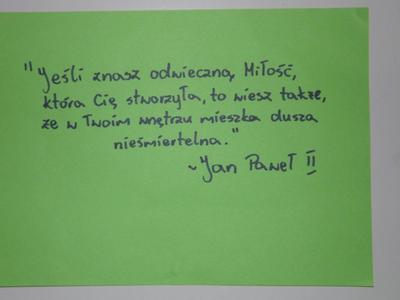 "Jeśli znasz odwieczną Miłość,
która Cię stworzyła, to wiesz także,
że w Twoim wnętrzu mieszka dusza
nieśmiertelna."
~Jan Paweł II